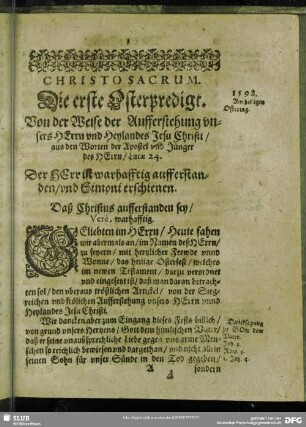 1
CHRISTO SACRUM.
Die erste Osterpredigt.
Von der Weise der Aufferstehung vn-
sers HErrn vnd Heylandes Jesu Christi/
aus den Worten der Apostel vnd Jünger
des HErrn/ Lucæ 24.
Der HErr ist warhafftig aufferstan-
den/ vnd Simoni erschienen.
Daß Christus aufferstanden sey/
Verè, warhafftig.
GEliebten im HErrn/ Heute fahen
wir abermals an/ im Namen deß HErrn/
zu feyern/ mit herylicher Frewde vnnd
Wonne/ das heilige Osterfest/ welches
im newen Testament/ darzu verordnet
vnd eingesetzt ist/ daß man daran betrach-
ten sol/ den vberaus tröstlichen Artickel/ von der Sieg-
reichen vnd frölichen Aufferstehung vnsers HErrn vnnd
Heylandes Jesu Christi.
Wir dancken aber zum Eingang dieses Fests billich/
von grund vnsers Hertzens/ Gott dem himlischen Vater/
daß er seine ausssprechliche Liebe gegen vns arme Men-
schen so reichlich bewiesen vnd dargethan/ vnd nicht allein
seinen Sohn für vnser Sünde in den Tod gegeben/
A
sondern
1593.
Am heiligen
Ostertag.
Dancksagung
zu Gott dem
Vater.
Joh. 3.
Rom. 5.
1. Joh. 4.
SLUB
Wir führen Wissen.